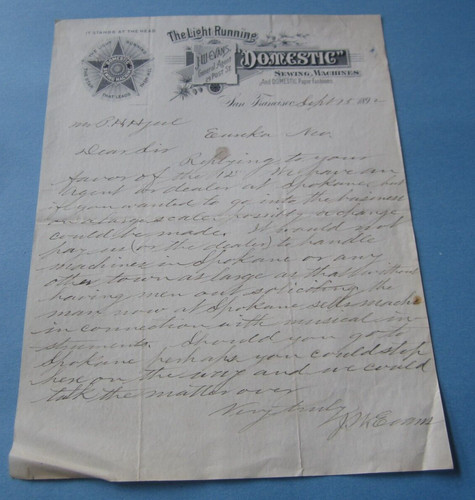 IT STANDS AT THE HEAD
The Light Running
J.W. EVANS,
General Agent
29 POST ST.
"DOMESTIC"
SEWING MACHINES,
And DOMESTIC Paper Fashions
San Francisco Sept 15 18
Mr P. H. Hjul
Eureka Nev.
Dear Sir
Replying to your
favor of the 12" We have an
Urgent or dealer at Spokane but
if you wanted to go into the business
on a large scale possibly a change
could be made. It would not
pay us (or the dealer) to handle
machines in Spokane or any
other town as large as that without
having men out soliciting the
man now at Spokane sells machs
in connection with musical in-
struments. Should you go to
Spokane perhaps you could stop
here on the way and we could
talk the matter over
Very truly
J. W. Evans